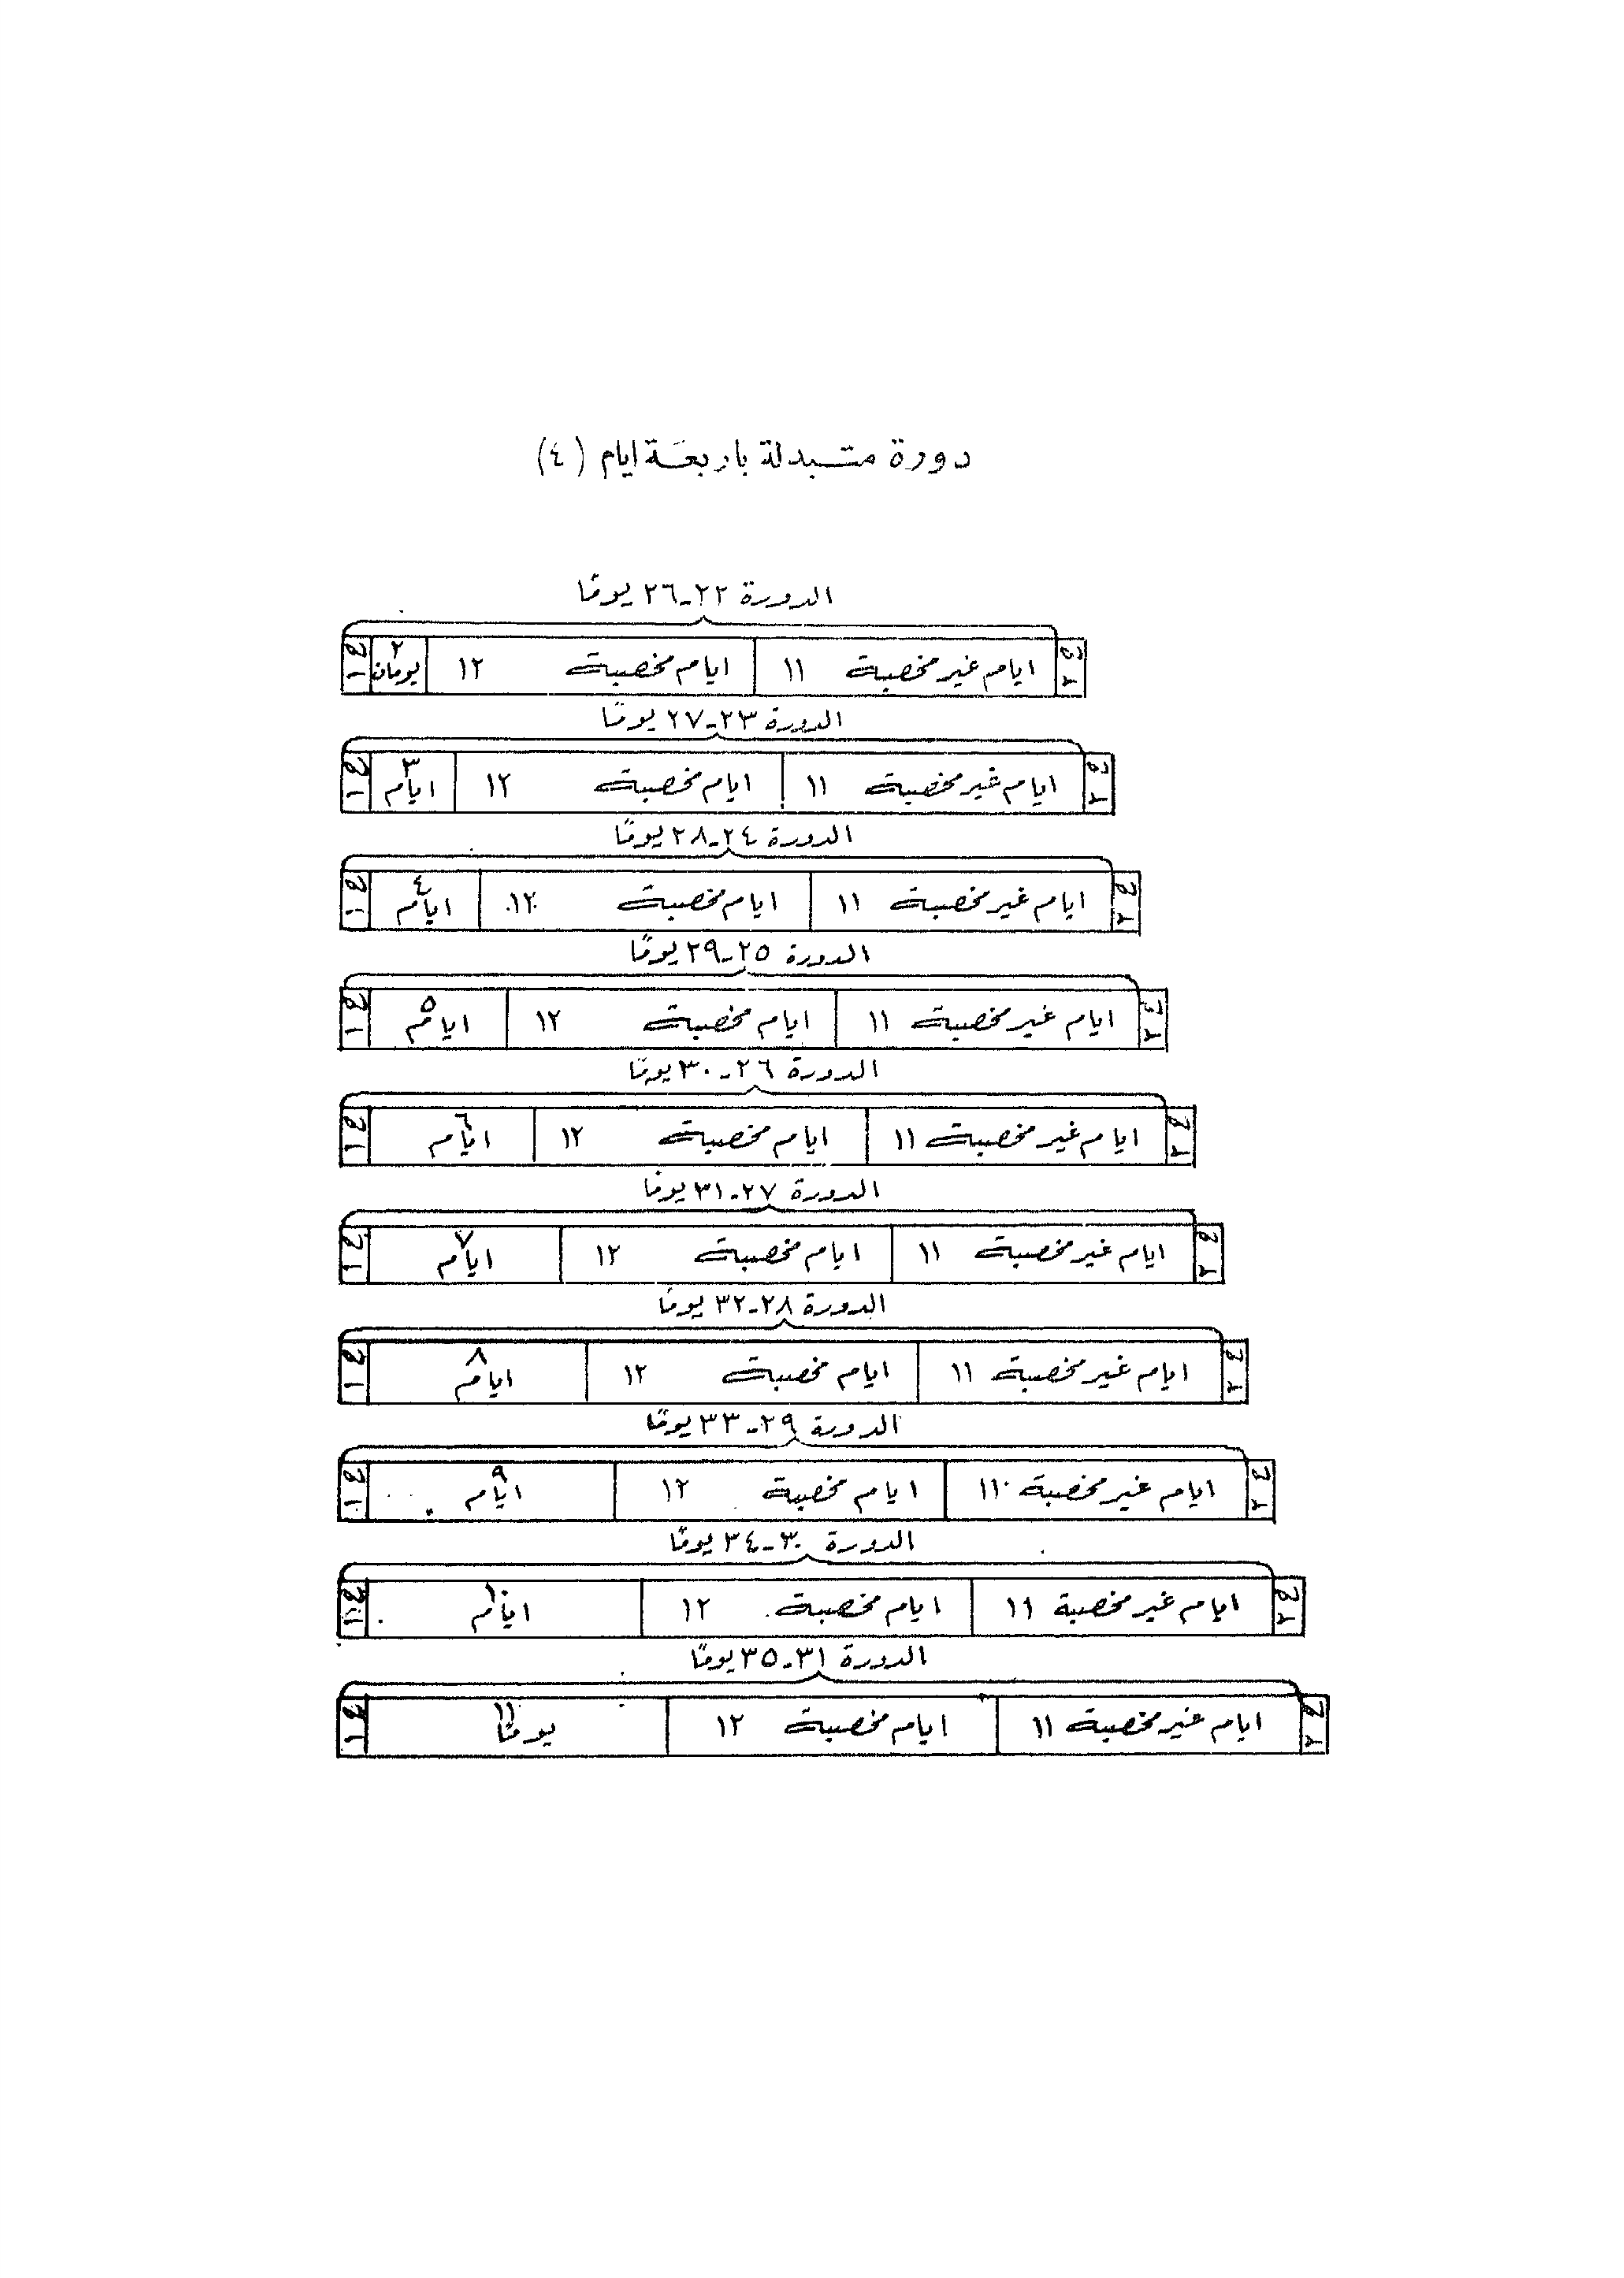 دورة متبدلة باربعة ايام (٤)
الدورة ٢٢-٢٦ يومًا
ح ٢ ايام غير مخصبة ١١ ايام مخصبة ١٢ ٢ يومان ح ١
الدورة ٢٣-٢٧ يومًا
ح ٢ ايام غير مخصبة ١١ ايام مخصبة ١٢ ٣ ايام ح ١
الدورة ٢٤-٢٨ يومًا
ح ٢ ايام غير مخصبة ١١ ايام مخصبة ١٢ ٤ ايام ح ١
الدورة ٢٥-٢٩ يومًا
ح ٢ ايام غير مخصبة ١١ ايام مخصبة ١٢ ٥ ايام ح ١
الدورة ٢٦-٣٠ يومًا
ح ٢ ايام غير مخصبة ١١ ايام مخصبة ١٢ ٦ ايام ح ١
الدورة ٢٧-٣١ يومًا
ح ٢ ايام غير مخصبة ١١ ايام مخصبة ١٢ ٧ ايام ح ١
الدورة ٢٨-٣٢ يومًا
ح ٢ ايام غير مخصبة ١١ ايام مخصبة ١٢ ٨ ايام ح ١
الدورة ٢٩-٣٣ يومًا
ح ٢ ايام غير مخصبة ١١ ايام مخصبة ١٢ ٩ ايام ح ١
الدورة ٣٠-٣٤ يومًا
ح ٢ ايام غير مخصبة ١١ ايام مخصبة ١٢ ١٠ ايام ح ١
الدورة ٣١-٣٥ يومًا
ح ٢ ايام غير مخصبة ١١ ايام مخصبة ١٢ ١١ يومًا ح ١